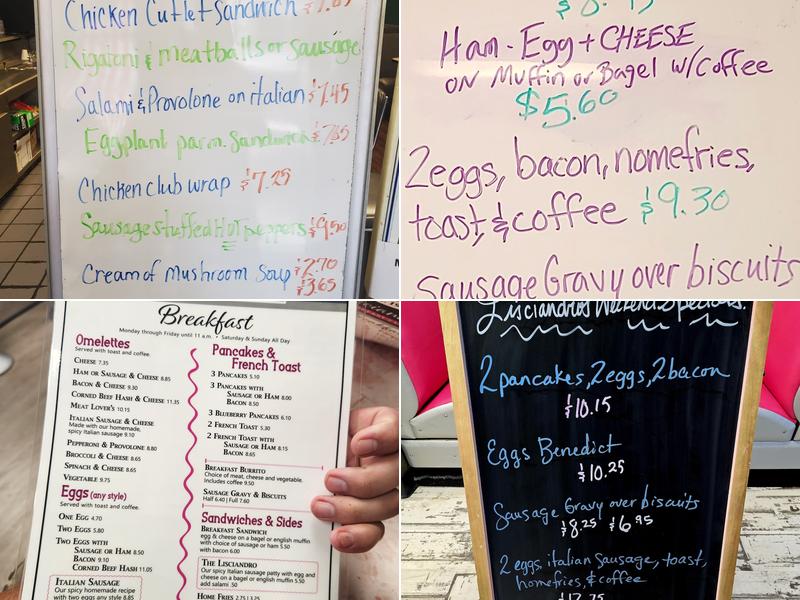 Chicken Cutlet Sandwich
Rigatoni & meatballs or sausage
Salami & Provolone on italian $7.45
Eggplant parm. Sandwich $7.85
Chicken club wrap $7.25
Sausage stuffed Hot peppers $9.50
Cream of Mushroom Soup $2.70
$3.65
Ham - Egg + CHEESE
ON Muffin or Bagel w/Coffee
$5.60
2eggs, bacon, homefries,
toast, & coffee $9.30
Sausage Gravy over biscuits
Breakfast
Monday through Friday until 11 a.m. • Saturday & Sunday All Day
Omelettes
Served with toast and coffee.
Cheese 7.35
Ham or Sausage & Cheese 8.85
Bacon & Cheese 9.30
Corned Beef Hash & Cheese 11.35
Meat Lover's 10.15
Italian Sausage & Cheese
Made with our homemade,
spicy Italian sausage 9.10
Pepperoni & Provolone 8.80
Broccoli & Cheese 8.65
Spinach & Cheese 8.65
Vegetable 9.75
Eggs (any style)
Served with toast and coffee.
One Egg 4.70
Two Eggs 5.80
Two Eggs with
Sausage or Ham 8.50
Bacon 9.10
Corned Beef Hash 11.05
Italian Sausage
Our spicy homemade recipe
with two eggs any style 8.85
Pancakes &
French Toast
3 Pancakes 5.10
3 Pancakes with
Sausage or Ham 8.00
Bacon 8.50
3 Blueberry Pancakes 6.10
2 French Toast 5.30
2 French Toast with
Sausage or Ham 8.15
Bacon 8.65
Breakfast Burrito
Choice of meat, cheese and vegetable.
Includes coffee 9.50
Sausage Gravy & Biscuits
Half 6.40 | Full 7.60
Sandwiches & Sides
Breakfast Sandwich
egg & cheese on a bagel or english muffin
with choice of sausage or ham 5.50
with bacon 6.00
The Lisciandro
Our spicy Italian sausage patty with egg and
cheese on a bagel or english muffin 5.50
add salami .50
Home Fries 2.75 | 3.25
Lisciandros Weekend Specials.
2 pancakes, 2 eggs, 2 bacon
$10.15
Eggs Benedict
$10.25
Sausage Gravy over biscuits
$8.25 $6.95
2 eggs, italian Sausage, toast,
homefries, & coffee